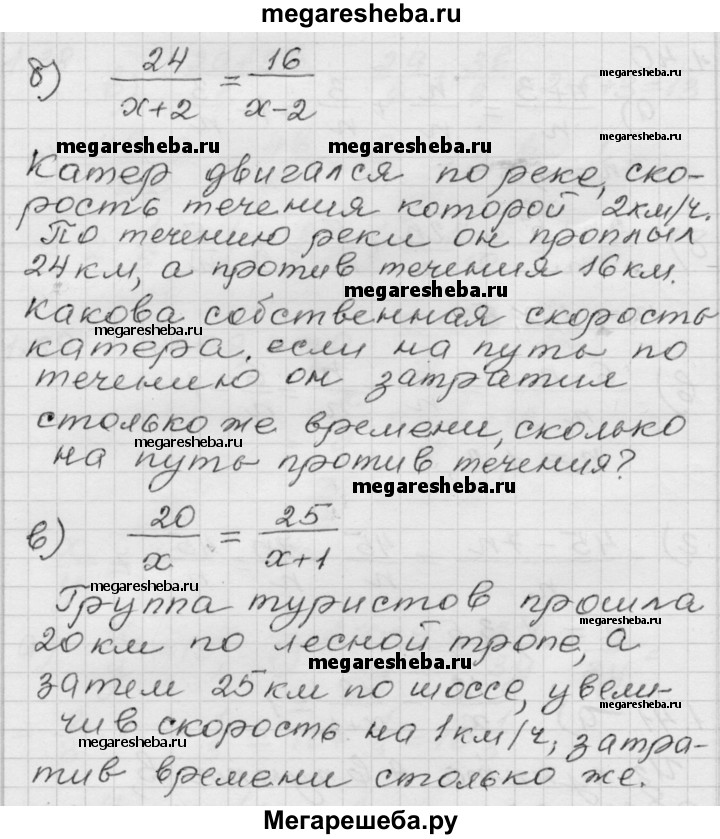 megaresheba.ru
б) 24/x+2 = 16/x-2
megaresheba.ru
megaresheba.ru
megaresheba.ru
megaresheba.ru
Катер двигался по реке, ско-
рость течения которой 2км/ч.
По течению реки он проплыл
24км, а против течения 16км.
megaresheba.ru
Какова собственная скорость
megaresheba.ru
катера, если на путь по
течению он затратил
столько же времени, сколько
megaresheba.ru
на путь против течения?
megaresheba.ru
в) 20/x = 25/x+1
megaresheba.ru
Группа туристов прошла
megaresheba.ru
20км по лесной тропе, а
megaresheba.ru
затем 25км по шоссе, увели-
чив скорость на 1км/ч, затра-
megaresheba.ru
тив времени столько же.
Мегарешеба.ру